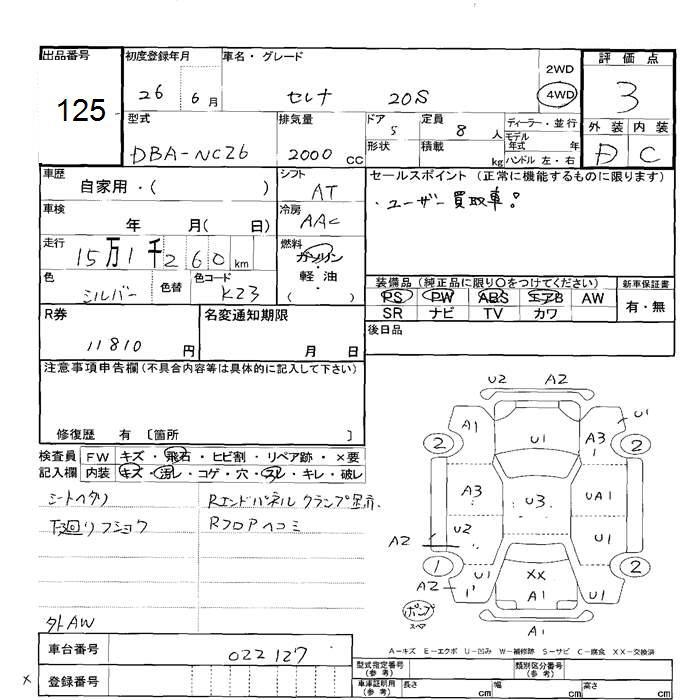 出品番号
125
初度登録年月
26 6 月
車名・グレード
セレナ 20S
2WD
4WD
評価点
3
外装 内装
D C
型式
DBA-NC26
排気量
2000 CC
ドア
5
形状
定員
8 人
積載
kg
ディーラー・並行
モデル
年式 年
ハンドル 左・右
車歴
自家用・( )
シフト
AT
セールスポイント (正常に機能するものに限ります)
・ユーザー買取車!
車検
年 月( 日)
冷房
AAC
走行
15万1千260 km
燃料
ガソリン
・
軽・油
( )
色
シルバー
色替
色コード
K23
装備品 (純正品に限り〇をつけてください)
PS PW ABS エアB AW
SR ナビ TV カワ
新車保証書
有・無
R券
11810 円
名変通知期限
月 日
後日品
注意事項申告欄 (不具合内容等は具体的に記入して下さい)
修復歴 有 〔箇所 〕
検査員
記入欄
FW キズ・飛石・ヒビ割・リペア跡・×要
内装 キズ・汚レ・コゲ・穴・スレ・キレ・破レ
シートヘタリ
下廻リフショク
外AW
Rエンドパネル クランプ跡有.
Rフロアヘコミ
U2 A2
A1 U1 A3 U1
2 2
A3 U3 UA1
U2 U1
A2
1 2
A2 U1 XX U1
A1
A1
ポンプ
スペア
A-キズ E-エクボ U-凹み W-補修跡 S-サビ C-腐食 XX-交換済
車台番号
022127
×
登録番号
型式指定番号
(参考)
類別区分番号
(参考)
車庫証明用
(参考)
長さ cm
幅 cm
高さ cm